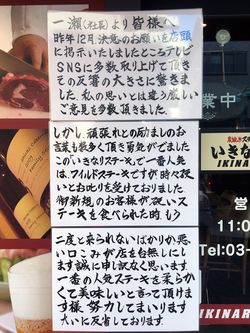 一瀬(社長)より皆様へ
昨年12月、決意のお願いを店頭
に掲示いたしましたところテレビ
SNSに多数取り上げて頂き
その反響の大きさに驚きま
した。私の思いとは違う厳しい
ご意見も多数頂きました。
しかし、頑張れとの励ましのお
言葉も数多く頂き勇気がでました
この「いきなりステーキ」で一番人気
は、ワイルドステーキですが時々硬
いとお叱りを受けておりました
御新規のお客様が硬いス
テーキを食べられた時もう
二度と来られないばかりか悪
い口こみが店を台無しにし
ます誠に申し訳なく思います
一番の人気ステーキを柔らか
くて美味しいと言って頂けま
す様、努力してまいります
大いに反省しております。
業中
いきな
IKINA
営
11:0
Tel:03-
IKINAR